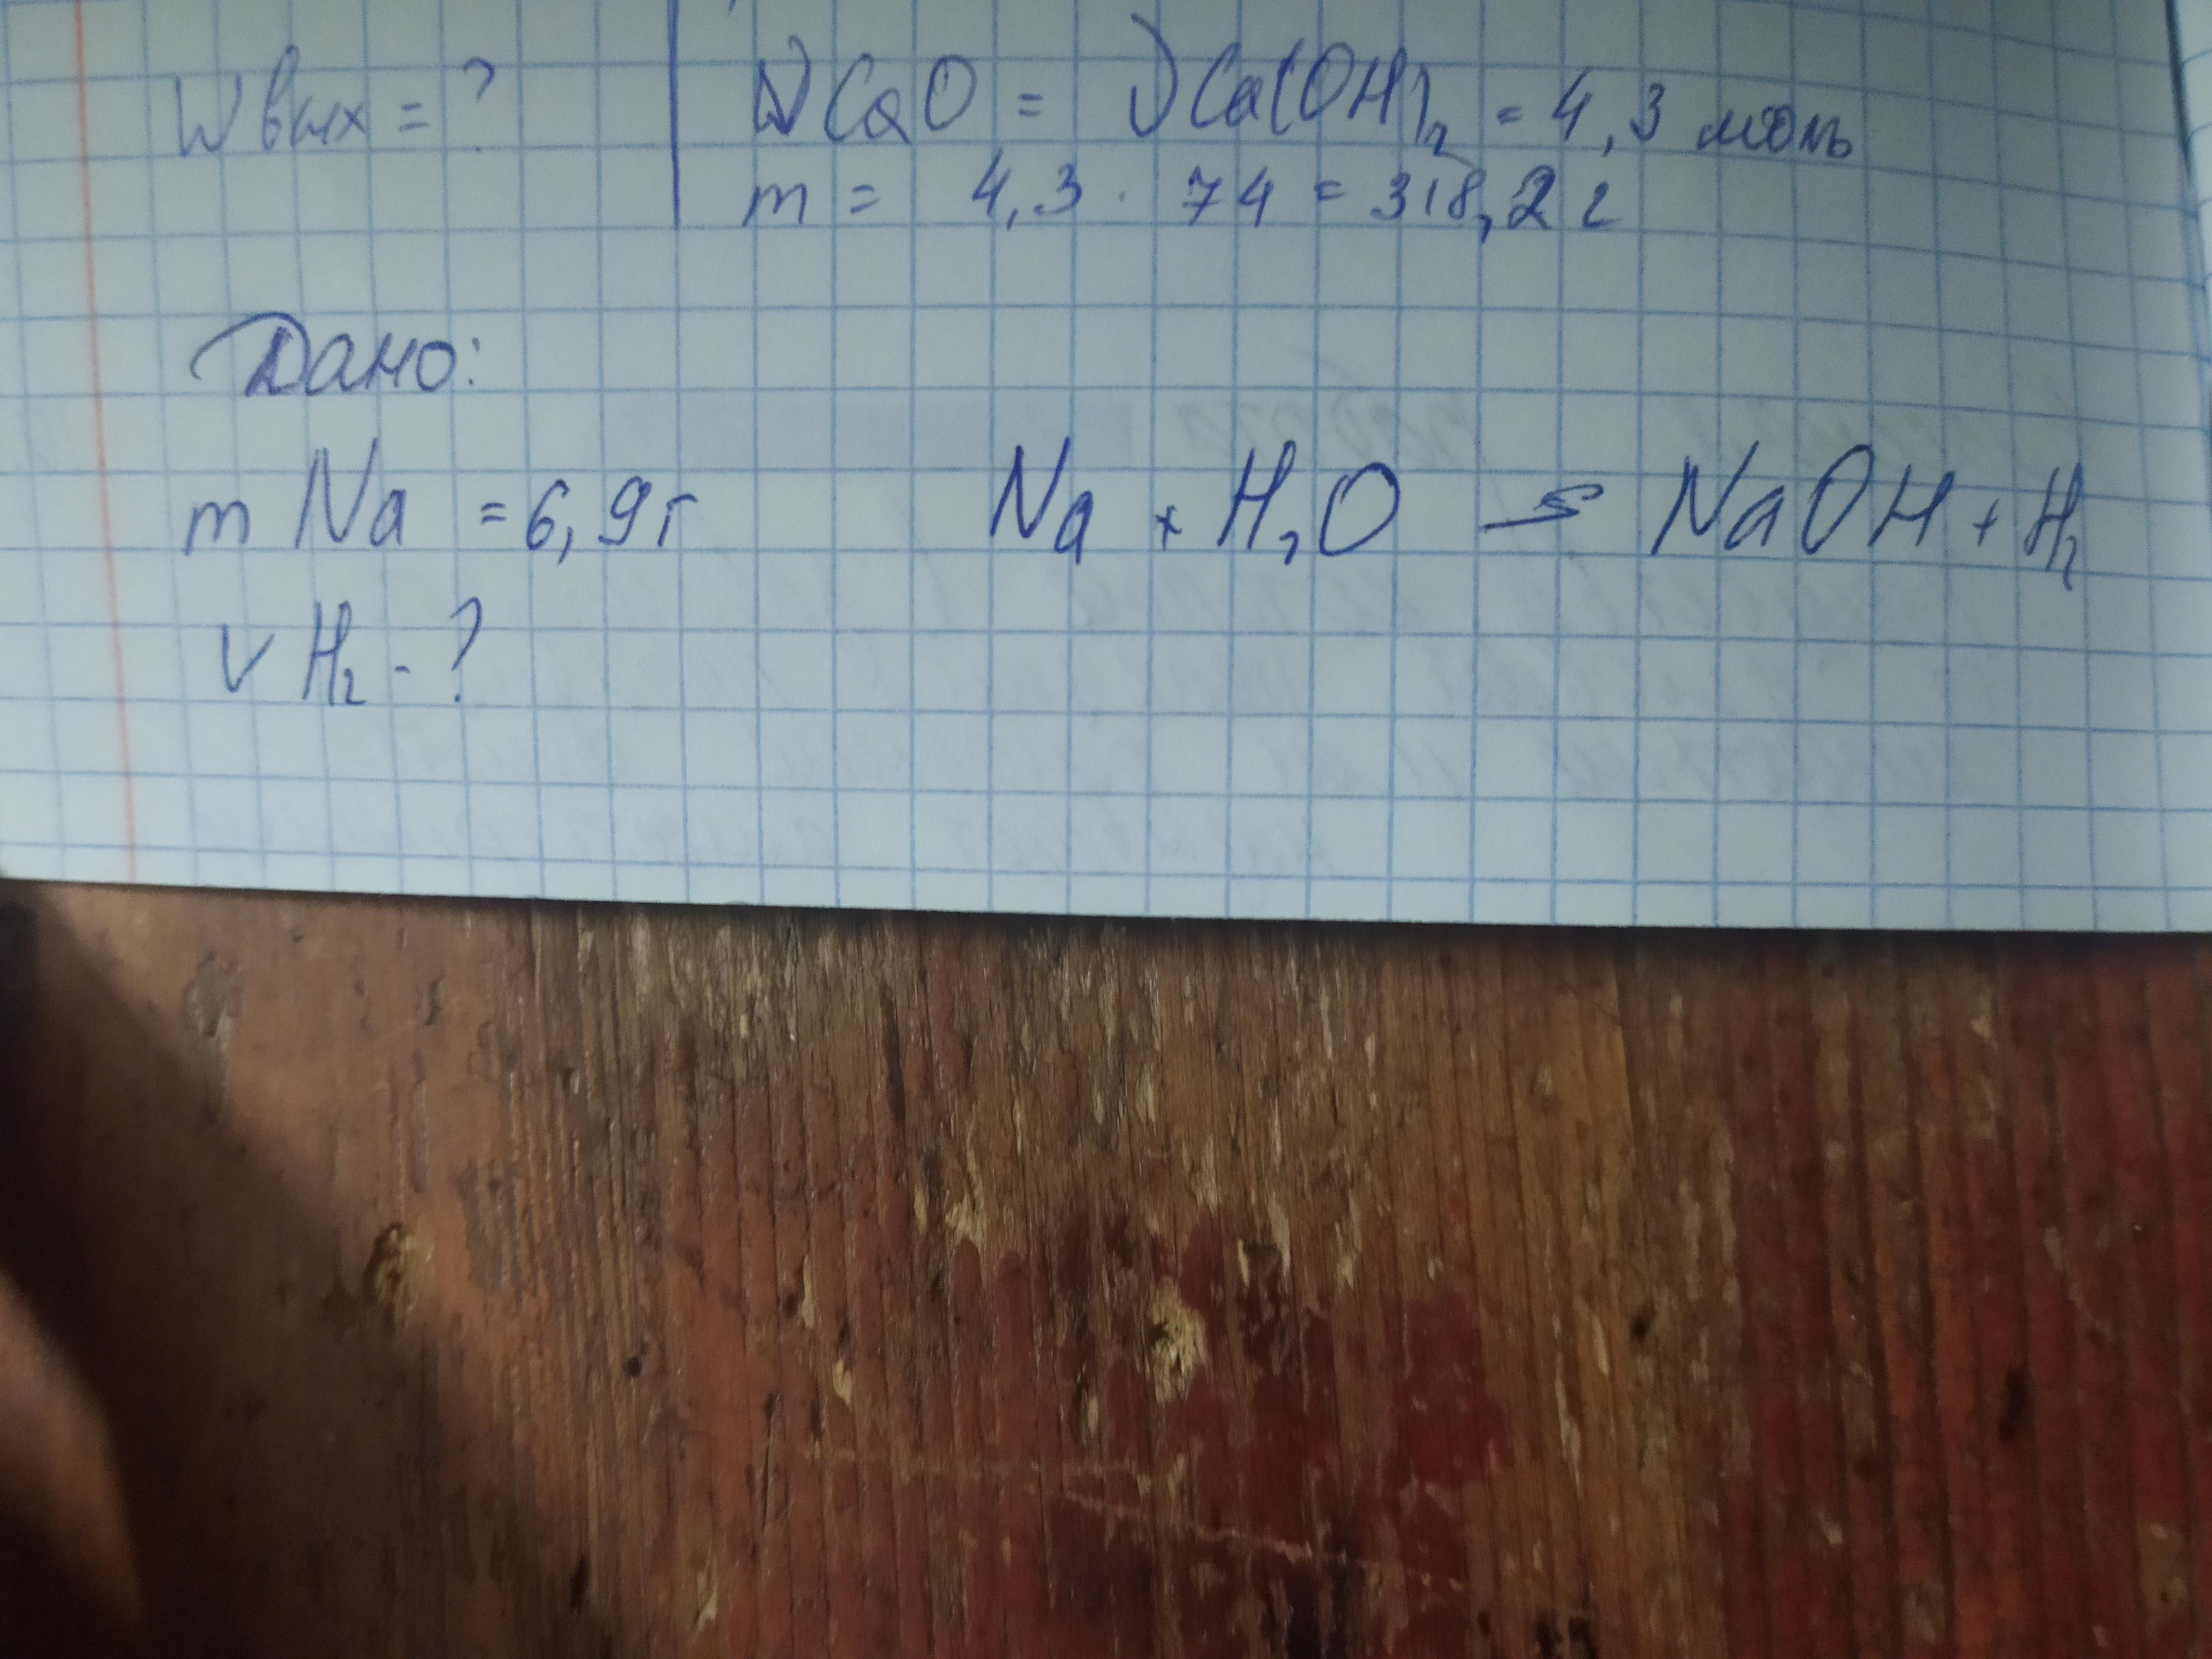 Wвых = ? νCaO = νCa(OH)₂ = 4,3 моль
m = 4,3 · 74 = 318,2 г
Дано:
m Na = 6,9г Na + H₂O → NaOH + H₂
V H₂ - ?